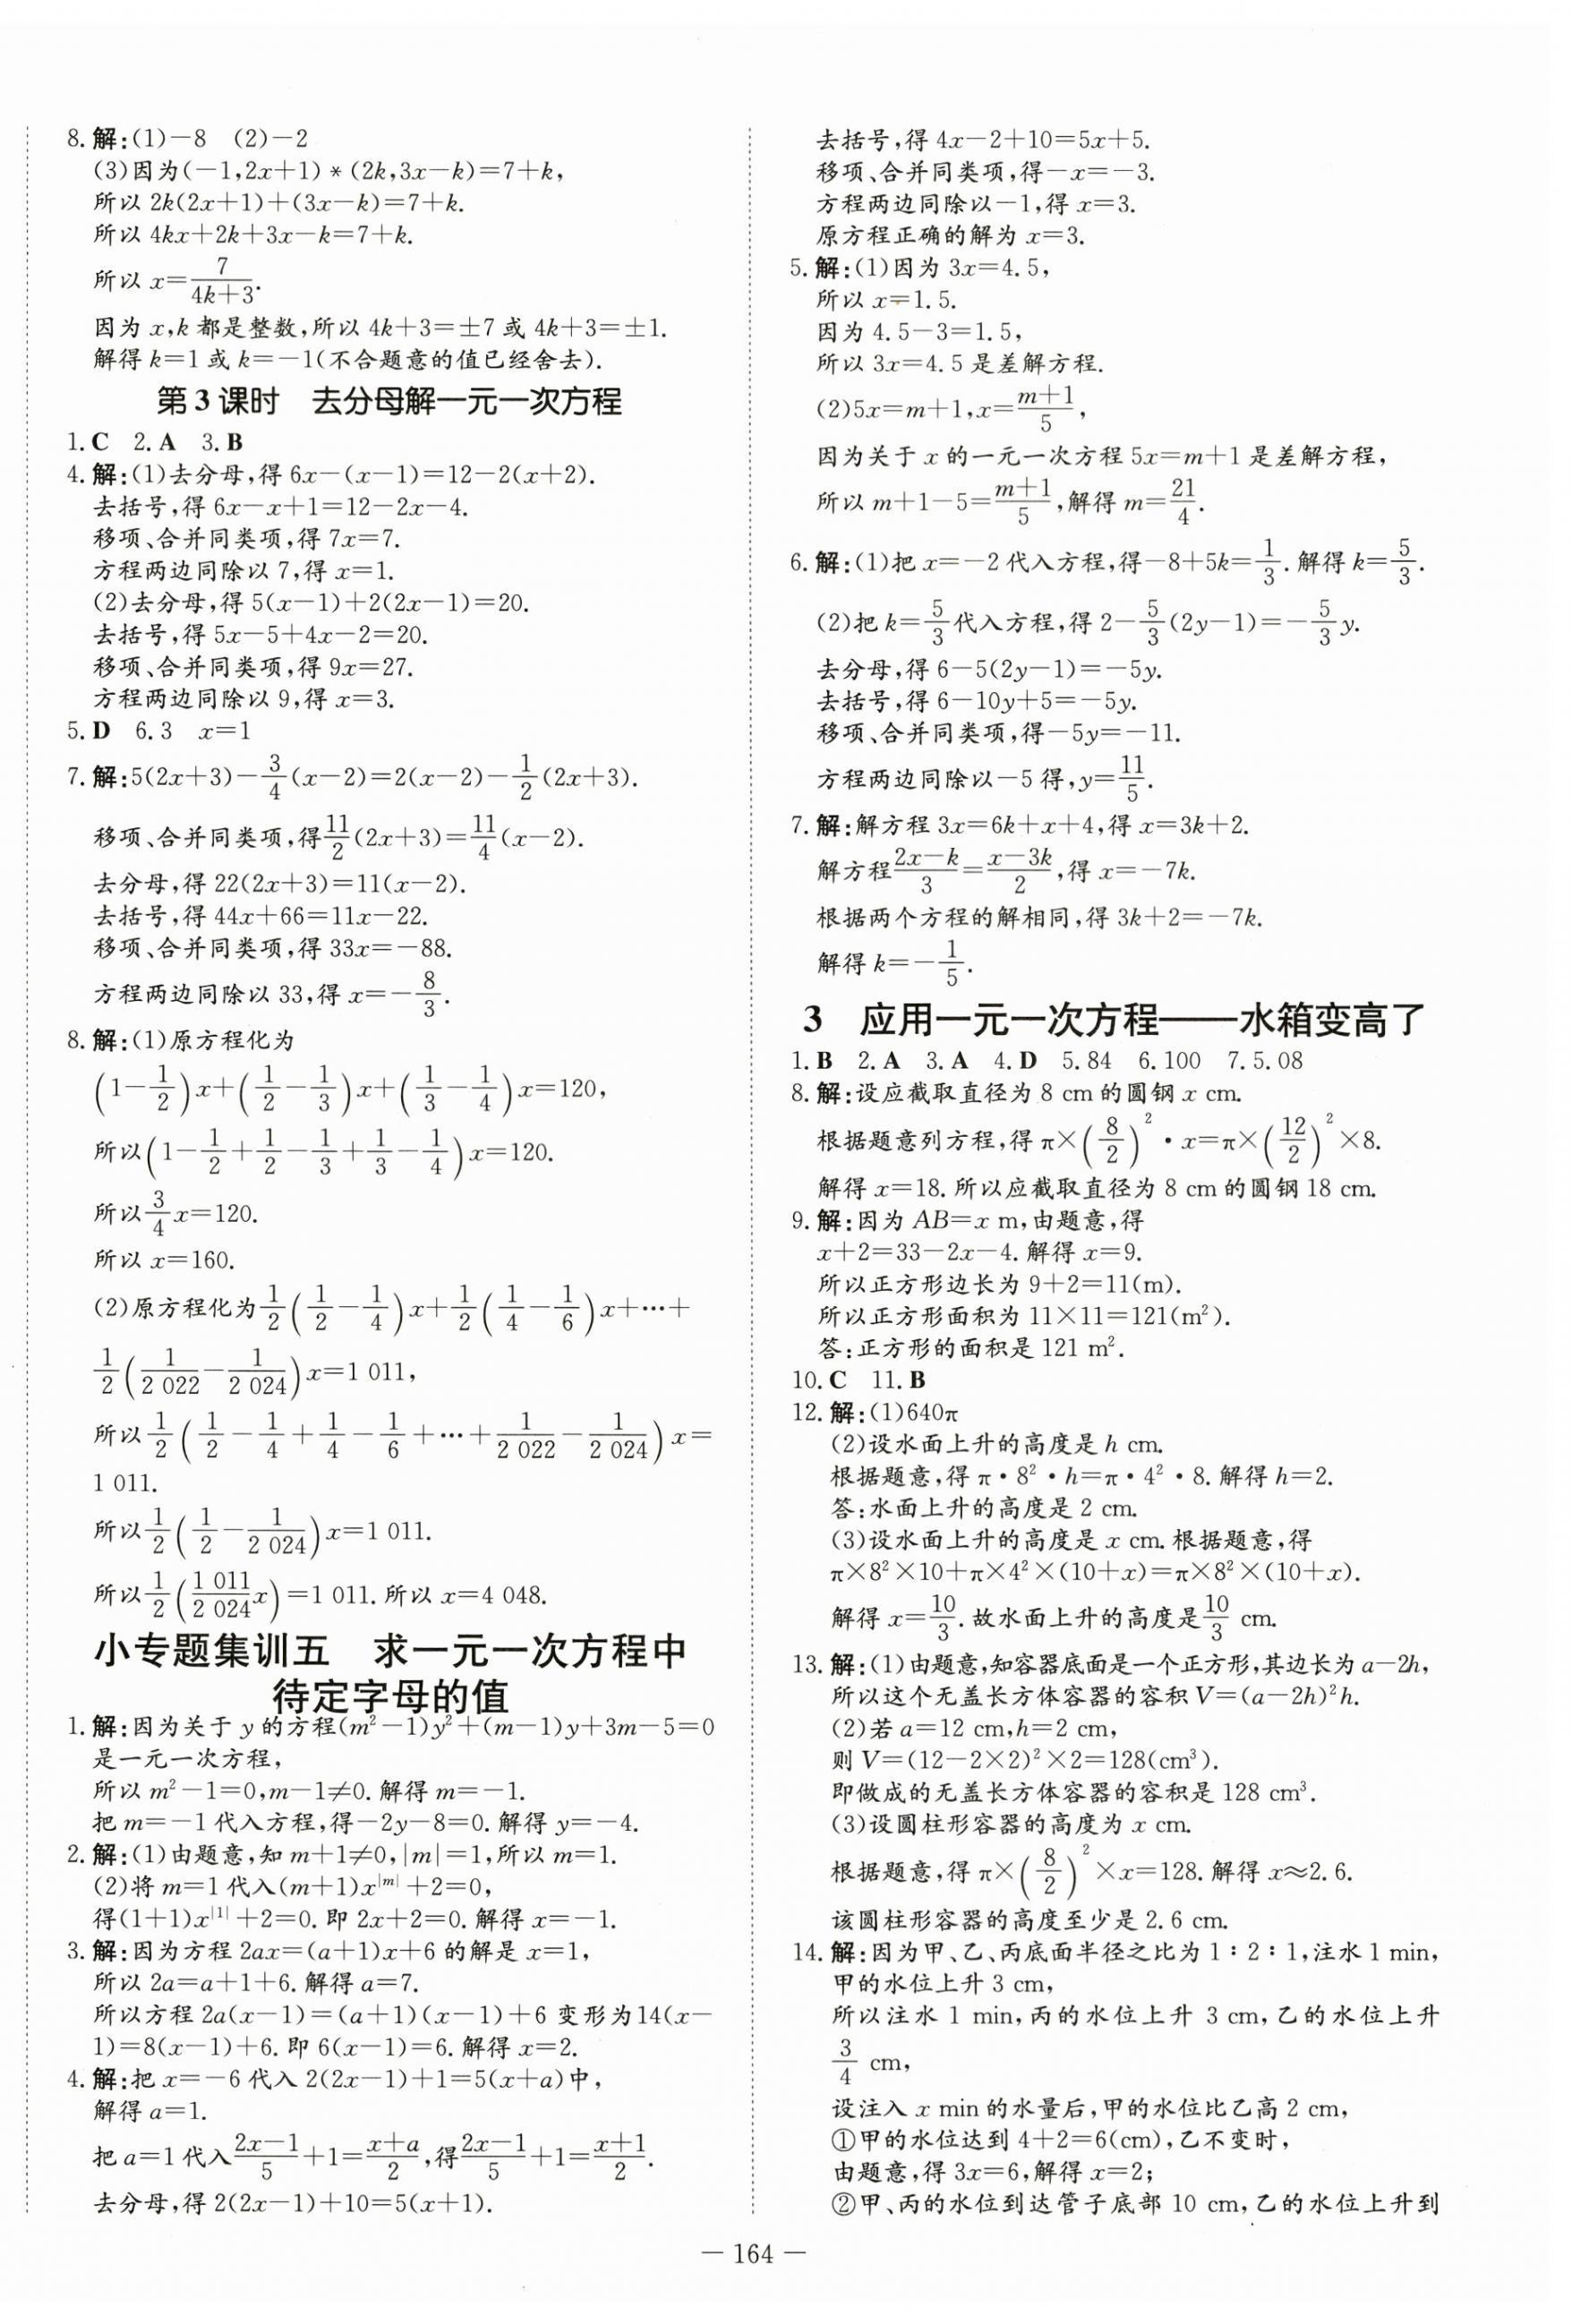 8. 解:(1)－8　(2)－2
(3)因为(－1,2x＋1)＊(2k,3x－k)＝7＋k,
所以 2k(2x＋1)＋(3x－k)＝7＋k.
所以 4kx＋2k＋3x－k＝7＋k.
所以 x＝7/(4k＋3).
因为 x,k 都是整数,所以 4k＋3＝±7 或 4k＋3＝±1.
解得 k＝1 或 k＝－1(不合题意的值已经舍去).
第 3 课时　去分母解一元一次方程
1. C　2. A　3. B
4. 解:(1)去分母,得 6x－(x－1)＝12－2(x＋2).
去括号,得 6x－x＋1＝12－2x－4.
移项、合并同类项,得 7x＝7.
方程两边同除以 7,得 x＝1.
(2)去分母,得 5(x－1)＋2(2x－1)＝20.
去括号,得 5x－5＋4x－2＝20.
移项、合并同类项,得 9x＝27.
方程两边同除以 9,得 x＝3.
5. D　6. 3　x＝1
7. 解:5(2x＋3)－3/4(x－2)＝2(x－2)－1/2(2x＋3).
移项、合并同类项,得11/2(2x＋3)＝11/4(x－2).
去分母,得 22(2x＋3)＝11(x－2).
去括号,得 44x＋66＝11x－22.
移项、合并同类项,得 33x＝－88.
方程两边同除以 33,得 x＝－8/3.
8. 解:(1)原方程化为
(1－1/2)x＋(1/2－1/3)x＋(1/3－1/4)x＝120,
所以(1－1/2＋1/2－1/3＋1/3－1/4)x＝120.
所以3/4x＝120.
所以 x＝160.
(2)原方程化为1/2(1/2－1/4)x＋1/2(1/4－1/6)x＋…＋
1/2(1/2 022－1/2 024)x＝1 011,
所以1/2(1/2－1/4＋1/4－1/6＋…＋1/2 022－1/2 024)x＝
1 011.
所以1/2(1/2－1/2 024)x＝1 011.
所以1/2(1 011/2 024x)＝1 011. 所以 x＝4 048.
小专题集训五　求一元一次方程中
待定字母的值
1. 解:因为关于 y 的方程(m²－1)y²＋(m－1)y＋3m－5＝0
是一元一次方程,
所以 m²－1＝0,m－1≠0. 解得 m＝－1.
把 m＝－1 代入方程,得－2y－8＝0. 解得 y＝－4.
2. 解:(1)由题意,知 m＋1≠0,|m|＝1,所以 m＝1.
(2)将 m＝1 代入(m＋1)x^|m|＋2＝0,
得(1＋1)x^|1|＋2＝0. 即 2x＋2＝0. 解得 x＝－1.
3. 解:因为方程 2ax＝(a＋1)x＋6 的解是 x＝1,
所以 2a＝a＋1＋6. 解得 a＝7.
所以方程 2a(x－1)＝(a＋1)(x－1)＋6 变形为14(x－
1)＝8(x－1)＋6. 即 6(x－1)＝6. 解得 x＝2.
4. 解:把 x＝－6 代入 2(2x－1)＋1＝5(x＋a)中,
解得 a＝1.
把 a＝1 代入(2x－1)/5＋1＝(x＋a)/2,得(2x－1)/5＋1＝(x＋1)/2.
去分母,得 2(2x－1)＋10＝5(x＋1).
去括号,得 4x－2＋10＝5x＋5.
移项、合并同类项,得－x＝－3.
方程两边同除以－1,得 x＝3.
原方程正确的解为 x＝3.
5. 解:(1)因为 3x＝4.5,
所以 x＝1.5.
因为 4.5－3＝1.5,
所以 3x＝4.5 是差解方程.
(2)5x＝m＋1,x＝(m＋1)/5,
因为关于 x 的一元一次方程 5x＝m＋1 是差解方程,
所以 m＋1－5＝(m＋1)/5,解得 m＝21/4.
6. 解:(1)把 x＝－2 代入方程,得－8＋5k＝1/3. 解得 k＝5/3.
(2)把 k＝5/3代入方程,得 2－5/3(2y－1)＝－5/3y.
去分母,得 6－5(2y－1)＝－5y.
去括号,得 6－10y＋5＝－5y.
移项、合并同类项,得－5y＝－11.
方程两边同除以－5 得,y＝11/5.
7. 解:解方程 3x＝6k＋x＋4,得 x＝3k＋2.
解方程(2x－k)/3＝(x－3k)/2,得 x＝－7k.
根据两个方程的解相同,得 3k＋2＝－7k.
解得 k＝－1/5.
3　应用一元一次方程——水箱变高了
1. B　2. A　3. A　4. D　5. 84　6. 100　7. 5.08
8. 解:设应截取直径为 8 cm 的圆钢 x cm.
根据题意列方程,得 π×(8/2)²·x＝π×(12/2)²×8.
解得 x＝18. 所以应截取直径为 8 cm 的圆钢 18 cm.
9. 解:因为 AB＝x m,由题意,得
x＋2＝33－2x－4. 解得 x＝9.
所以正方形边长为 9＋2＝11(m).
所以正方形面积为 11×11＝121(m²).
答:正方形的面积是 121 m².
10. C　11. B
12. 解:(1)640π
(2)设水面上升的高度是 h cm.
根据题意,得 π·8²·h＝π·4²·8. 解得 h＝2.
答:水面上升的高度是 2 cm.
(3)设水面上升的高度是 x cm. 根据题意,得
π×8²×10＋π×4²×(10＋x)＝π×8²×(10＋x).
解得 x＝10/3. 故水面上升的高度是10/3 cm.
13. 解:(1)由题意,知容器底面是一个正方形,其边长为 a－2h,
所以这个无盖长方体容器的容积 V＝(a－2h)²h.
(2)若 a＝12 cm,h＝2 cm,
则 V＝(12－2×2)²×2＝128(cm³).
即做成的无盖长方体容器的容积是 128 cm³.
(3)设圆柱形容器的高度为 x cm.
根据题意,得 π×(8/2)²×x＝128. 解得 x≈2.6.
该圆柱形容器的高度至少是 2.6 cm.
14. 解:因为甲、乙、丙底面半径之比为 1∶2∶1,注水 1 min,
甲的水位上升 3 cm,
所以注水 1 min,丙的水位上升 3 cm,乙的水位上升
3/4 cm,
设注入 x min 的水量后,甲的水位比乙高 2 cm,
①甲的水位达到 4＋2＝6(cm),乙不变时,
由题意,得 3x＝6,解得 x＝2;
②甲、丙的水位到达管子底部 10 cm,乙的水位上升到
— 164 —